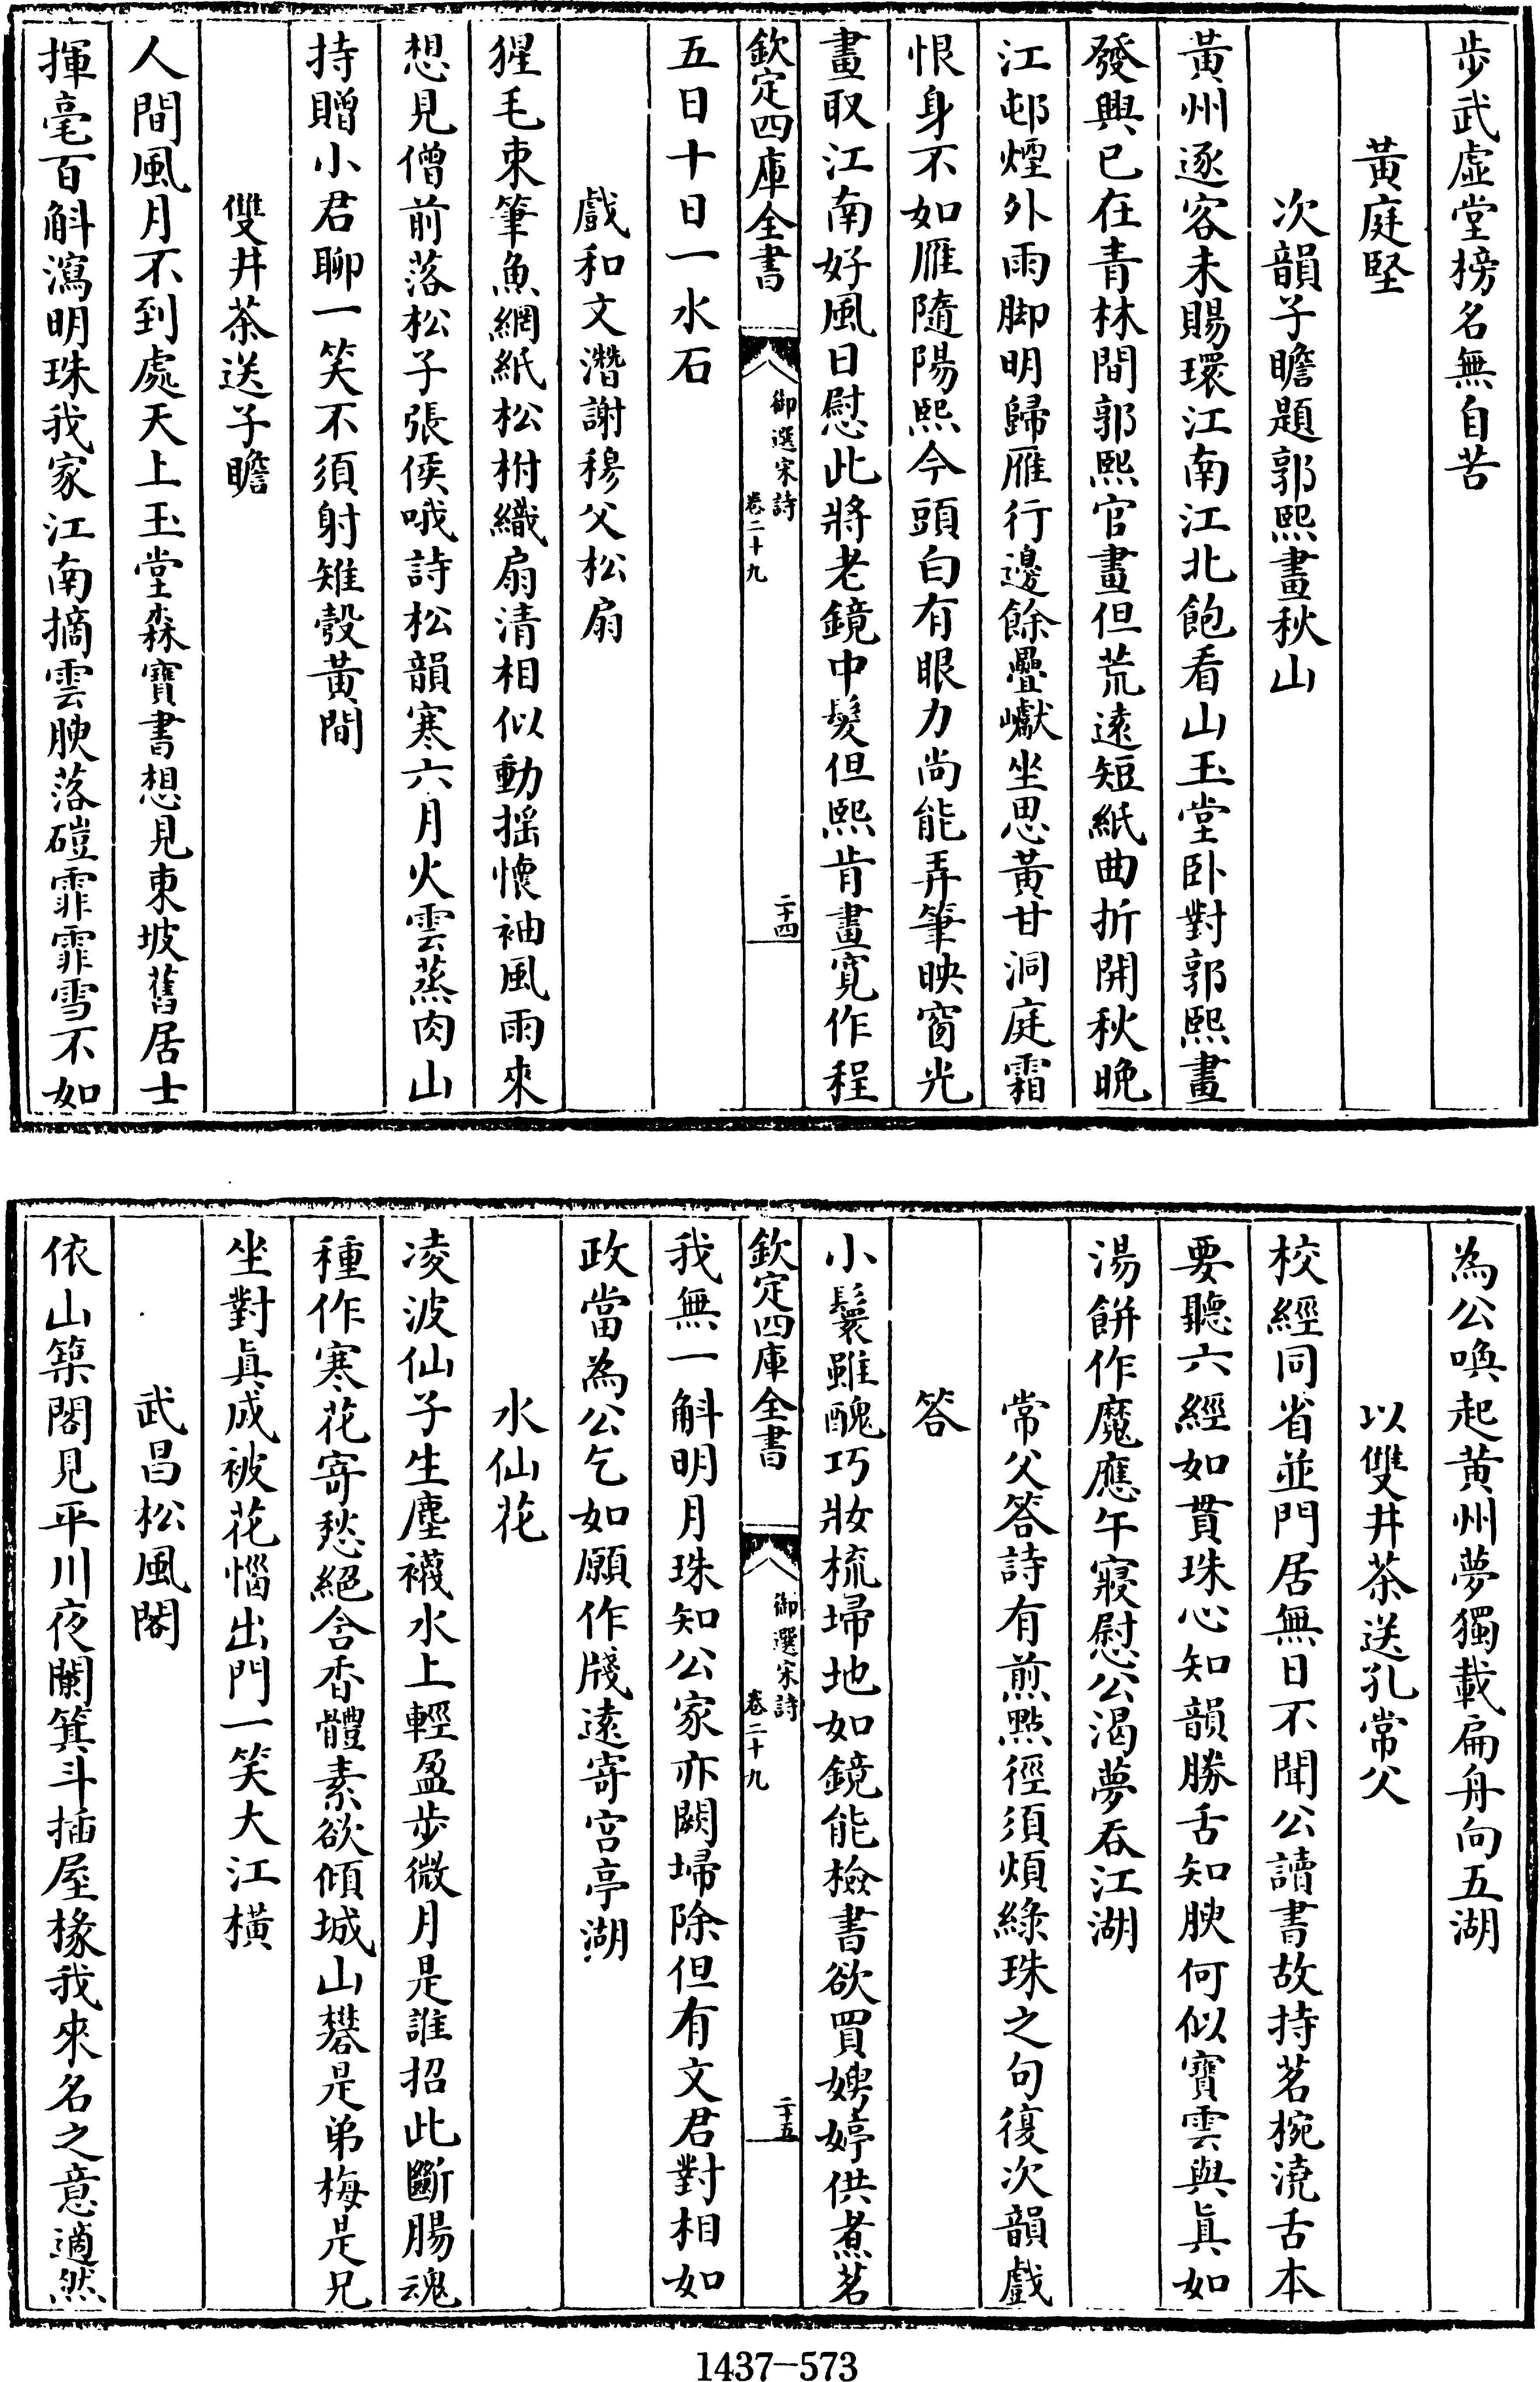 步武虛堂榜名無自苦
黃庭堅
次韻子瞻題郭熙畫秋山
黃州逐客未賜環江南江北飽看山玉堂卧對郭熙畫
發興已在青林間郭熙官畫但荒遠短紙曲折開秋晚
江邨煙外雨脚明歸雁行邊餘疊巘坐思黃甘洞庭霜
恨身不如雁隨陽熙今頭白有眼力尚能弄筆映窗光
畫取江南好風日慰此將老鏡中髮但熙肯畫寛作程
欽定四庫全書 御選宋詩 卷二十九 二十四
五日十日一水石
戲和文潛謝穆父松扇
猩毛束筆魚網紙松柎織扇清相似動揺懷袖風雨來
想見僧前落松子張侯哦詩松韻寒六月火雲蒸肉山
持贈小君聊一笑不須射雉彀黃間
雙井茶送子瞻
人間風月不到處天上玉堂森寶書想見東坡舊居士
揮毫百斛瀉明珠我家江南摘雲腴落磑霏霏雪不如
為公喚起黄州夢獨載扁舟向五湖
以雙井茶送孔常父
校經同省並門居無日不聞公讀書故持茗椀澆舌本
要聽六經如貫珠心知韻勝舌知腴何似寶雲與真如
湯餅作魔應午寢慰公渴夢吞江湖
常父答詩有煎點徑須煩綠珠之句復次韻戲
答
小鬟雖醜巧妝梳埽地如鏡能檢書欲買娉婷供煮茗
欽定四庫全書 御選宋詩 卷二十九 二十五
我無一斛明月珠知公家亦闕埽除但有文君對相如
政當為公乞如願作牋遠寄宫亭湖
水仙花
凌波仙子生塵襪水上輕盈步微月是誰招此斷腸魂
種作寒花寄愁絕含香體素欲傾城山礬是弟梅是兄
坐對真成被花惱出門一笑大江橫
武昌松風閣
依山築閣見平川夜闌箕斗插屋椽我來名之意適然
1437-573